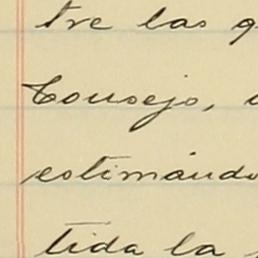 tre las q
Consejo,
estimando
tida la